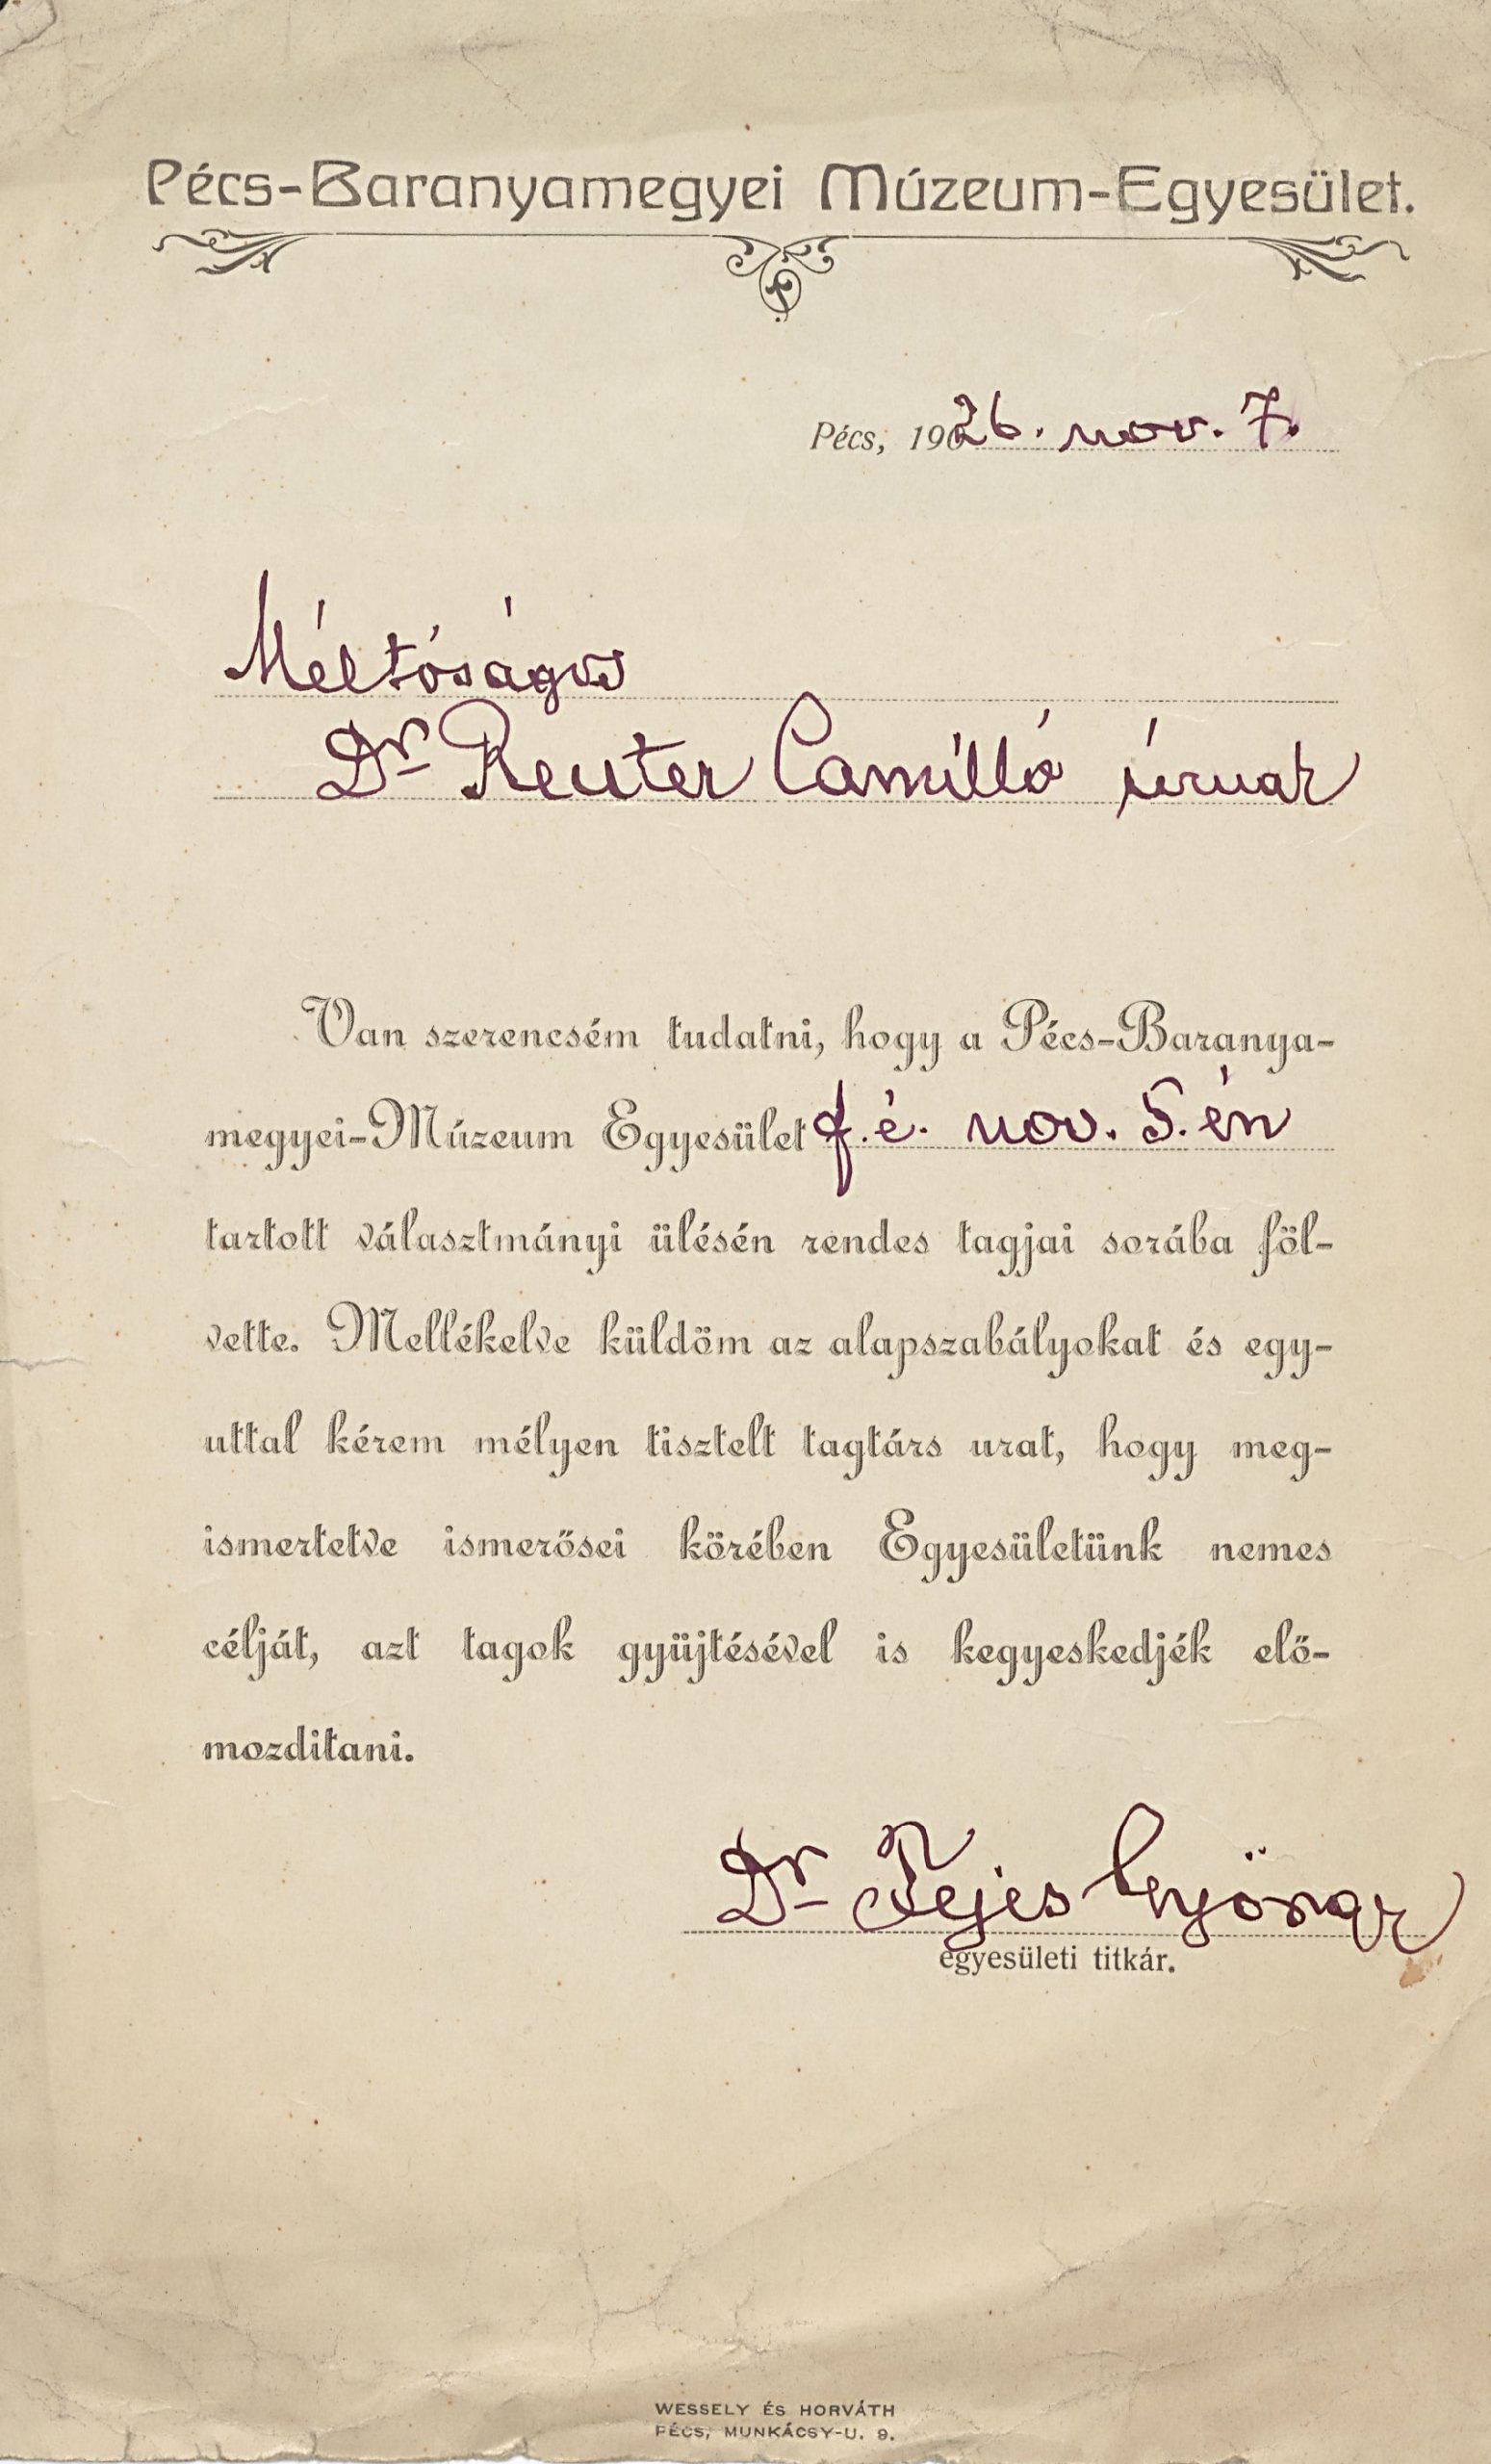 Pécs-Baranyamegyei Múzeum-Egyesület.
Pécs, 1926. nov. 7.
Méltóságos
Dr Reuter Camilló úrnak
Van szerencsém tudatni, hogy a Pécs-Baranya-
megyei-Múzeum Egyesület f. é. nov. 5.én
tartott választmányi ülésén rendes tagjai sorába föl-
vette. Mellékelve küldöm az alapszabályokat és egy-
uttal kérem mélyen tisztelt tagtárs urat, hogy meg-
ismertetve ismerősei körében Egyesületünk nemes
célját, azt tagok gyüjtésével is kegyeskedjék elő-
mozditani.
Dr Fejes György
egyesületi titkár.
WESSELY ÉS HORVÁTH
PÉCS, MUNKÁCSY-U. 9.